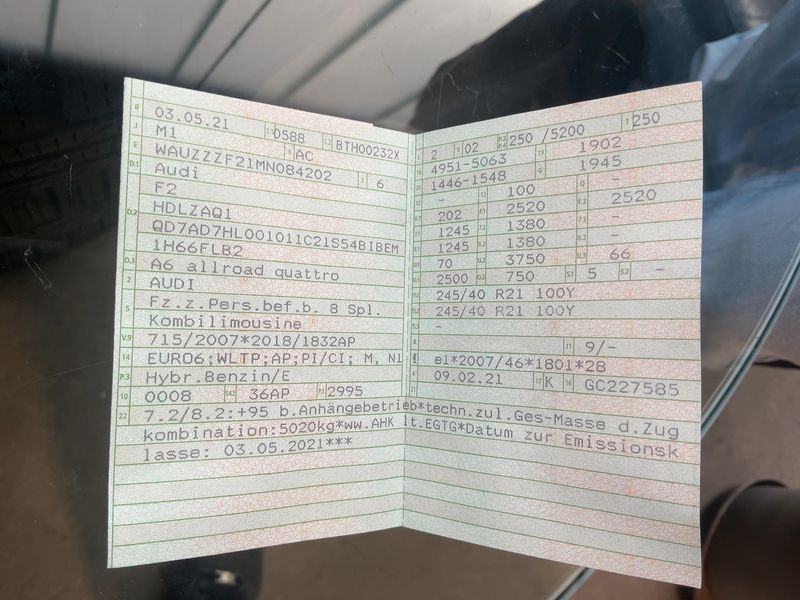 B 03.05.21 2.1 0588 2.2 BTH00232X
J M1 4 AC
E WAUZZZF21MN084202 3 6
D.1 Audi
F2
D.2 HDLZAQ1
QD7AD7HL001011C21S54BIBEM
1H66FLB2
D.3 A6 allroad quattro
2 AUDI
5 Fz.z.Pers.bef.b. 8 Spl.
Kombilimousine
V.9 715/2007*2018/1832AP
14 EURO6;WLTP;AP;PI/CI; M, N1
P.3 Hybr.Benzin/E
10 0008 14.1 36AP P.1 2995
L 2 9 02 P.2 P.4 250 /5200 T 250
18 4951-5063 19 1902
20 1446-1548 G 1945
12 - 13 100 Q -
V.7 202 F.1 2520 F.2 2520
7.1 1245 7.2 1380 7.3 -
8.1 1245 8.2 1380 8.3 -
U.1 70 U.2 3750 U.3 66
O.1 2500 O.2 750 S.1 5 S.2 -
15.1 245/40 R21 100Y
15.2 245/40 R21 100Y
15.3 -
R 11 9/-
K e1*2007/46*1801*28
6 09.02.21 17 K 16 GC227585
21
22 7.2/8.2:+95 b.Anhängebetrieb*techn.zul.Ges-Masse d.Zug
kombination:5020kg*ww.AHK lt.EGTG*Datum zur Emissionsk
lasse: 03.05.2021***